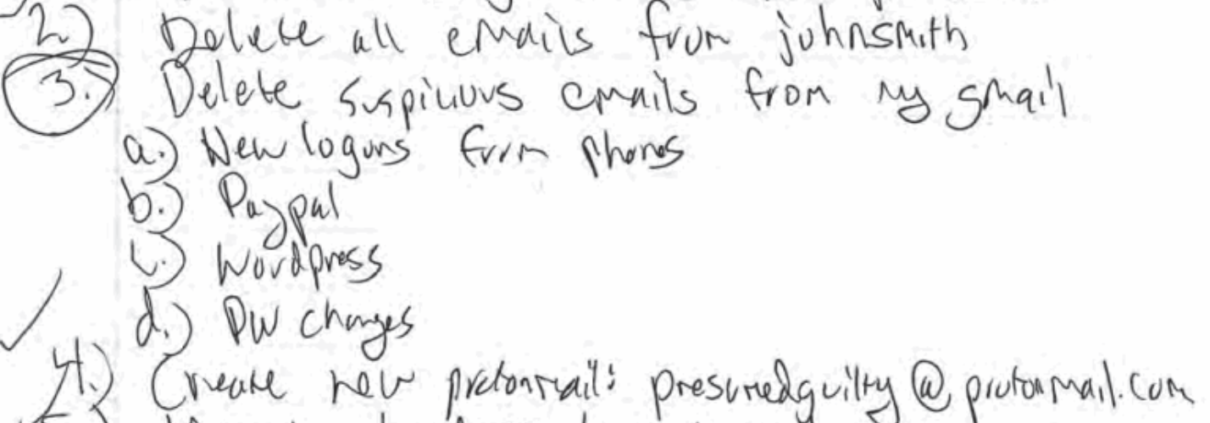 2.) Delete all emails from johnsmith
3.) Delete suspicious emails from my gmail
a.) New logons from phones
b.) Paypal
c.) Wordpress
d.) PW changes
4.) Create new protonmail: presumedguilty@protonmail.com